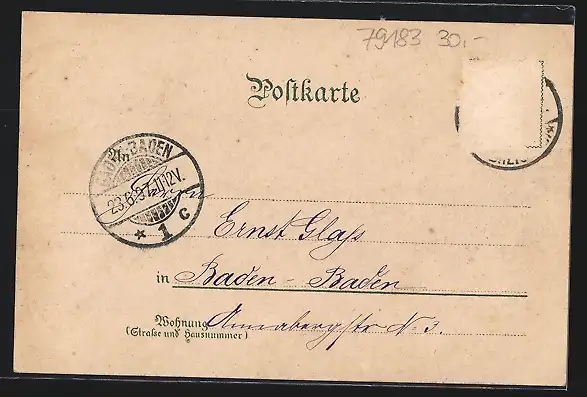 79183 30.-
Postkarte
An
BADEN
23.6.97.11-12V.
* 1 c
Ernst Glass
in Baden-Baden
Wohnung Annabergstr N. 3.
(Straße und Hausnummer)